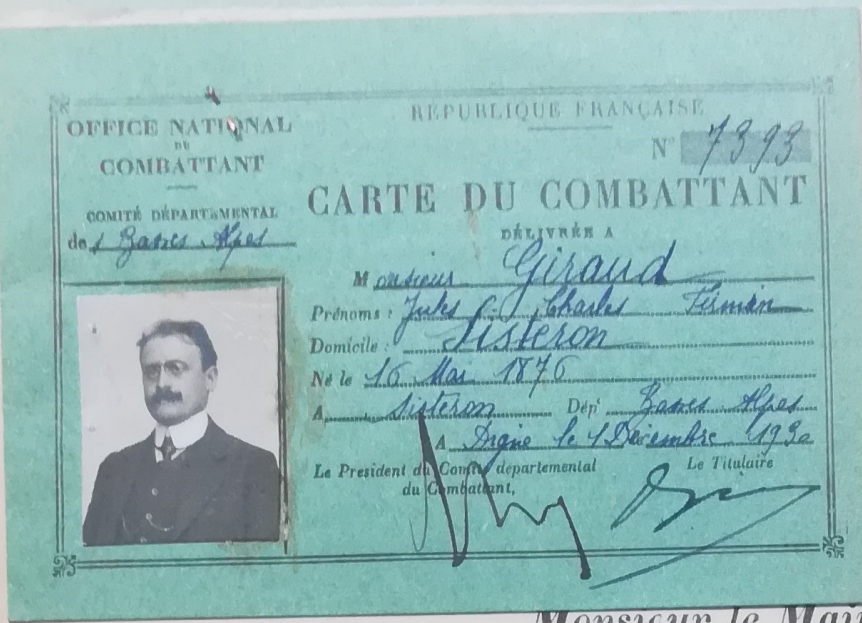 OFFICE NATIONAL
DU
COMBATTANT
COMITÉ DÉPARTEMENTAL
des Basses Alpes
RÉPUBLIQUE FRANÇAISE
N° 7393
CARTE DU COMBATTANT
DÉLIVRÉE A
Monsieur Giraud
Prénoms : Jules Charles Firmin
Domicile : Sisteron
Né le 16 Mai 1876
A Sisteron Dépt Basses Alpes
A Digne le 1 Décembre 1930
Le Président du Comité départemental
du Combattant,
Le Titulaire
Monsieur le Mai